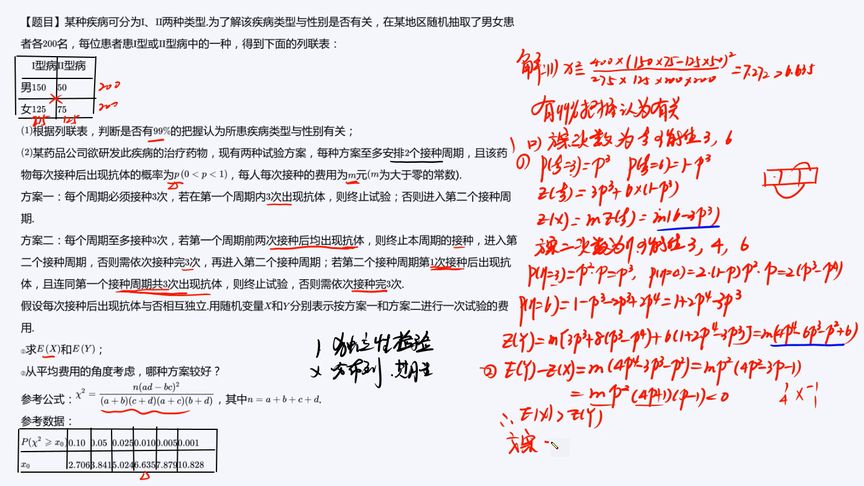 【题目】某种疾病可分为Ⅰ、Ⅱ两种类型.为了解该疾病类型与性别是否有关，在某地区随机抽取了男女患
者各200名，每位患者患Ⅰ型或Ⅱ型病中的一种，得到下面的列联表：
Ⅰ型病 Ⅱ型病
男 150 50 200
女 125 75 200
275 125
(1)根据列联表，判断是否有99%的把握认为所患疾病类型与性别有关；
(2)某药品公司欲研发此疾病的治疗药物，现有两种试验方案，每种方案至多安排2个接种周期，且该药
物每次接种后出现抗体的概率为p(0<p<1)，每人每次接种的费用为m元(m为大于零的常数).
方案一：每个周期必须接种3次，若在第一个周期内3次出现抗体，则终止试验；否则进入第二个接种周
期.
方案二：每个周期至多接种3次，若第一个周期前两次接种后均出现抗体，则终止本周期的接种，进入第
二个接种周期，否则需依次接种完3次，再进入第二个接种周期；若第二个接种周期第1次接种后出现抗
体，且连同第一个接种周期共3次出现抗体，则终止试验，否则需依次接种完3次.
假设每次接种后出现抗体与否相互独立.用随机变量X和Y分别表示按方案一和方案二进行一次试验的费
用.
①求E(X)和E(Y)；
②从平均费用的角度考虑，哪种方案较好？
参考公式：χ²=n(ad−bc)²/((a+b)(c+d)(a+c)(b+d))，其中n=a+b+c+d.
参考数据：
P(χ²⩾x₀) 0.10 0.05 0.025 0.010 0.005 0.001
x₀ 2.706 3.841 5.024 6.635 7.879 10.828
1 独立性检验
2 分布列.期望
解:(1) χ²=400×(150×75-125×50)²/(275×125×200×200)=7.272>6.635
有99%把握认为有关
(2) 方案一次数为ξ 可能值3, 6
① P(ξ=3)=p³ P(ξ=6)=1-p³
E(ξ)=3p³+6×(1-p³)
E(X)=mE(ξ)=m(6-3p³)
方案二次数为η 可能值3, 4, 6
P(η=3)=p²·p=p³, =2·(1-p)p²·p=2(p³-p⁴)
P(η=6)=1-p³-2p³+2p⁴=1+2p⁴-3p³
E(Y)=m[3p³+8(p³-p⁴)+6(1+2p⁴-3p³)]=
② E(Y)-E(X)=m(4p⁴-3p³-p²)=mp²(4p²-3p-1)
=mp²(4p+1)(p-1)<0
1 -1
4 1
∴E(X)>E(Y)
方案